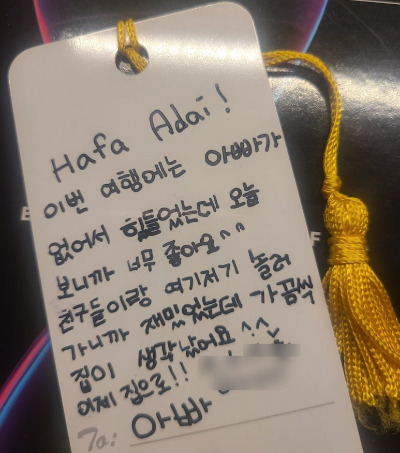 Hafa Adai!
이번 여행에는 아빠가
없어서 힘들었는데 오늘
보니까 너무 좋아요^^
친구들이랑 여기저기 놀러
가니까 재밌었는데 가끔씩
집이 생각났어요^^
이제 집으로!!
To: 아빠